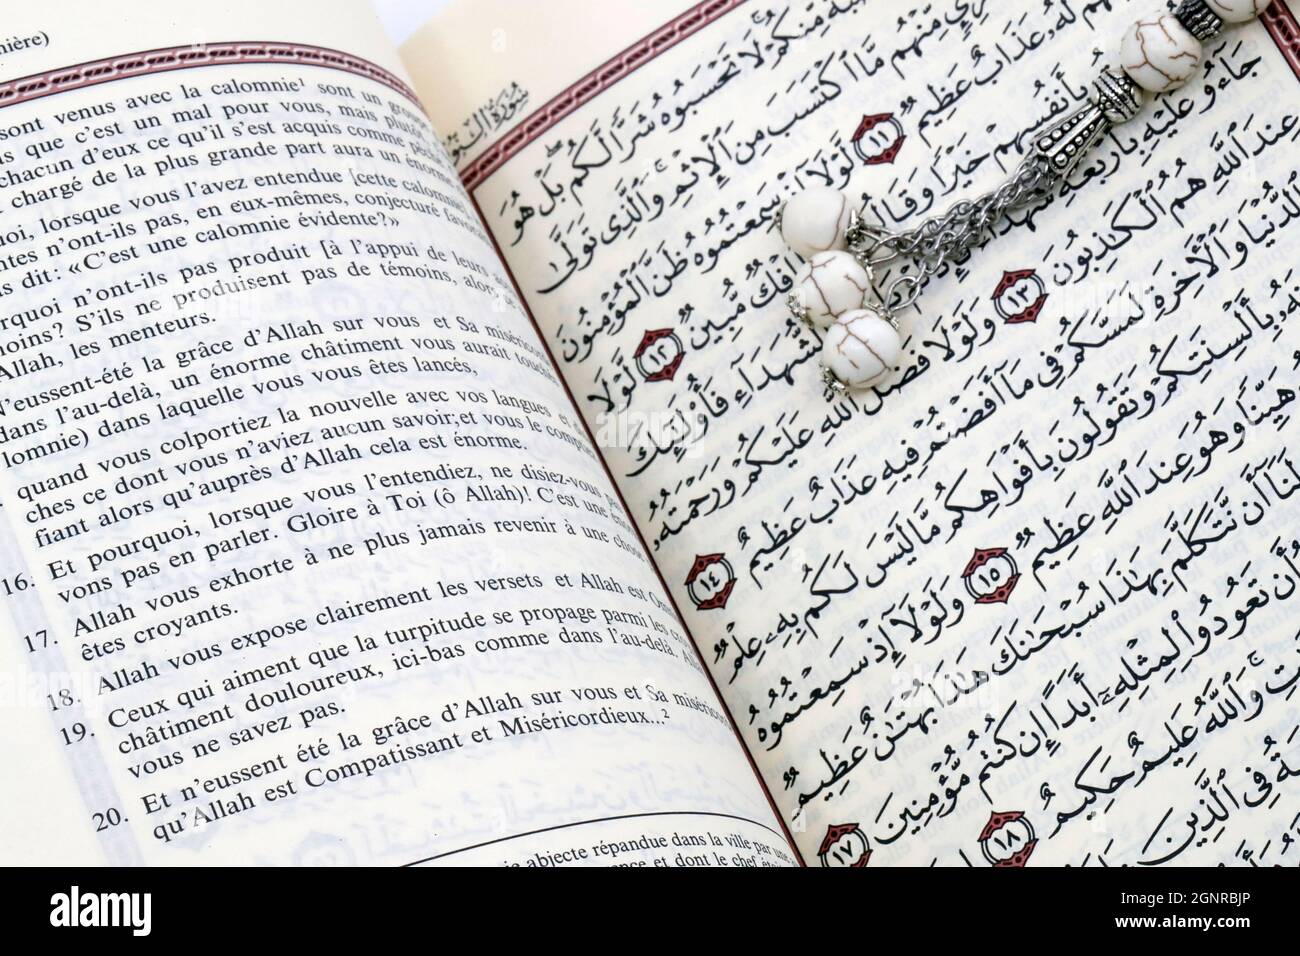 nière)
sont venus avec la calomnie¹ sont un groupe
que c'est un mal pour vous, mais plutôt
chacun d'eux ce qu'il s'est acquis comme péché
chargé de la plus grande part aura un énorme
lorsque vous l'avez entendue [cette calomnie],
n'ont-ils pas, en eux-mêmes, conjecturé favora
dit: «C'est une calomnie évidente?»
n'ont-ils pas produit [à l'appui de leurs
S'ils ne produisent pas de témoins, alors
Allah, les menteurs.
N'eussent-été la grâce d'Allah sur vous et Sa miséricorde
dans l'au-delà, un énorme châtiment vous aurait touchés
lomnie) dans laquelle vous vous êtes lancés,
quand vous colportiez la nouvelle avec vos langues et
ches ce dont vous n'aviez aucun savoir;et vous le comptiez
fiant alors qu'auprès d'Allah cela est énorme.
16. Et pourquoi, lorsque vous l'entendiez, ne disiez-vous pas
vons pas en parler. Gloire à Toi (ô Allah)! C'est une énorme
17. Allah vous exhorte à ne plus jamais revenir à une chose
êtes croyants.
18. Allah vous expose clairement les versets et Allah est Omn
19. Ceux qui aiment que la turpitude se propage parmi les cro
châtiment douloureux, ici-bas comme dans l'au-delà. Allah
vous ne savez pas.
20. Et n'eussent été la grâce d'Allah sur vous et Sa miséricorde
qu'Allah est Compatissant et Miséricordieux...²
abjecte répandue dans la ville par une
et dont le chef était
سُورَةُ النُّور
مِّنكُمْ لَا تَحْسَبُوهُ شَرًّا لَّكُم بَلْ هُوَ
مِّنْهُم مَّا اكْتَسَبَ مِنَ الْإِثْمِ وَالَّذِي تَوَلَّىٰ
لَهُ عَذَابٌ عَظِيمٌ ١١ لَّوْلَا إِذْ سَمِعْتُمُوهُ ظَنَّ الْمُؤْمِنُونَ
بِأَنفُسِهِمْ خَيْرًا وَقَالُوا إِفْكٌ مُّبِينٌ ١٢ لَّوْلَا
جَاءُو عَلَيْهِ بِأَرْبَعَةِ بِالشُّهَدَاءِ فَأُولَٰئِكَ
عِندَ اللَّهِ هُمُ الْكَاذِبُونَ ١٣ وَلَوْلَا فَضْلُ اللَّهِ عَلَيْكُمْ وَرَحْمَتُهُ
الدُّنْيَا وَالْآخِرَةِ لَمَسَّكُمْ فِي مَا أَفَضْتُمْ فِيهِ عَذَابٌ عَظِيمٌ ١٤
بِأَلْسِنَتِكُمْ وَتَقُولُونَ بِأَفْوَاهِكُم مَّا لَيْسَ لَكُم بِهِ عِلْمٌ
هَيِّنًا وَهُوَ عِندَ اللَّهِ عَظِيمٌ ١٥ وَلَوْلَا إِذْ سَمِعْتُمُوهُ
لَنَا أَن نَّتَكَلَّمَ بِهَٰذَا سُبْحَانَكَ هَٰذَا بُهْتَانٌ عَظِيمٌ
أَن تَعُودُوا لِمِثْلِهِ أَبَدًا إِن كُنتُم مُّؤْمِنِينَ ١٧
وَاللَّهُ عَلِيمٌ حَكِيمٌ ١٨
فِي الَّذِينَ
alamy
Image ID: 2GNRBJP
www.alamy.com